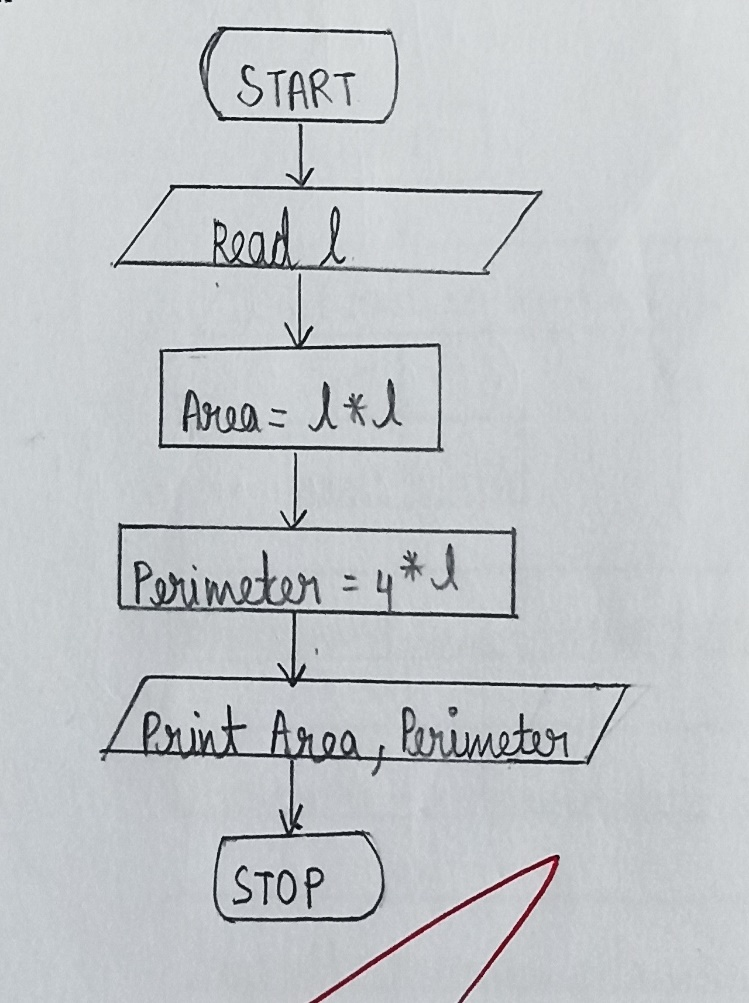 START
Read l
Area = l * l
Perimeter = 4 * l
Print Area, Perimeter
STOP